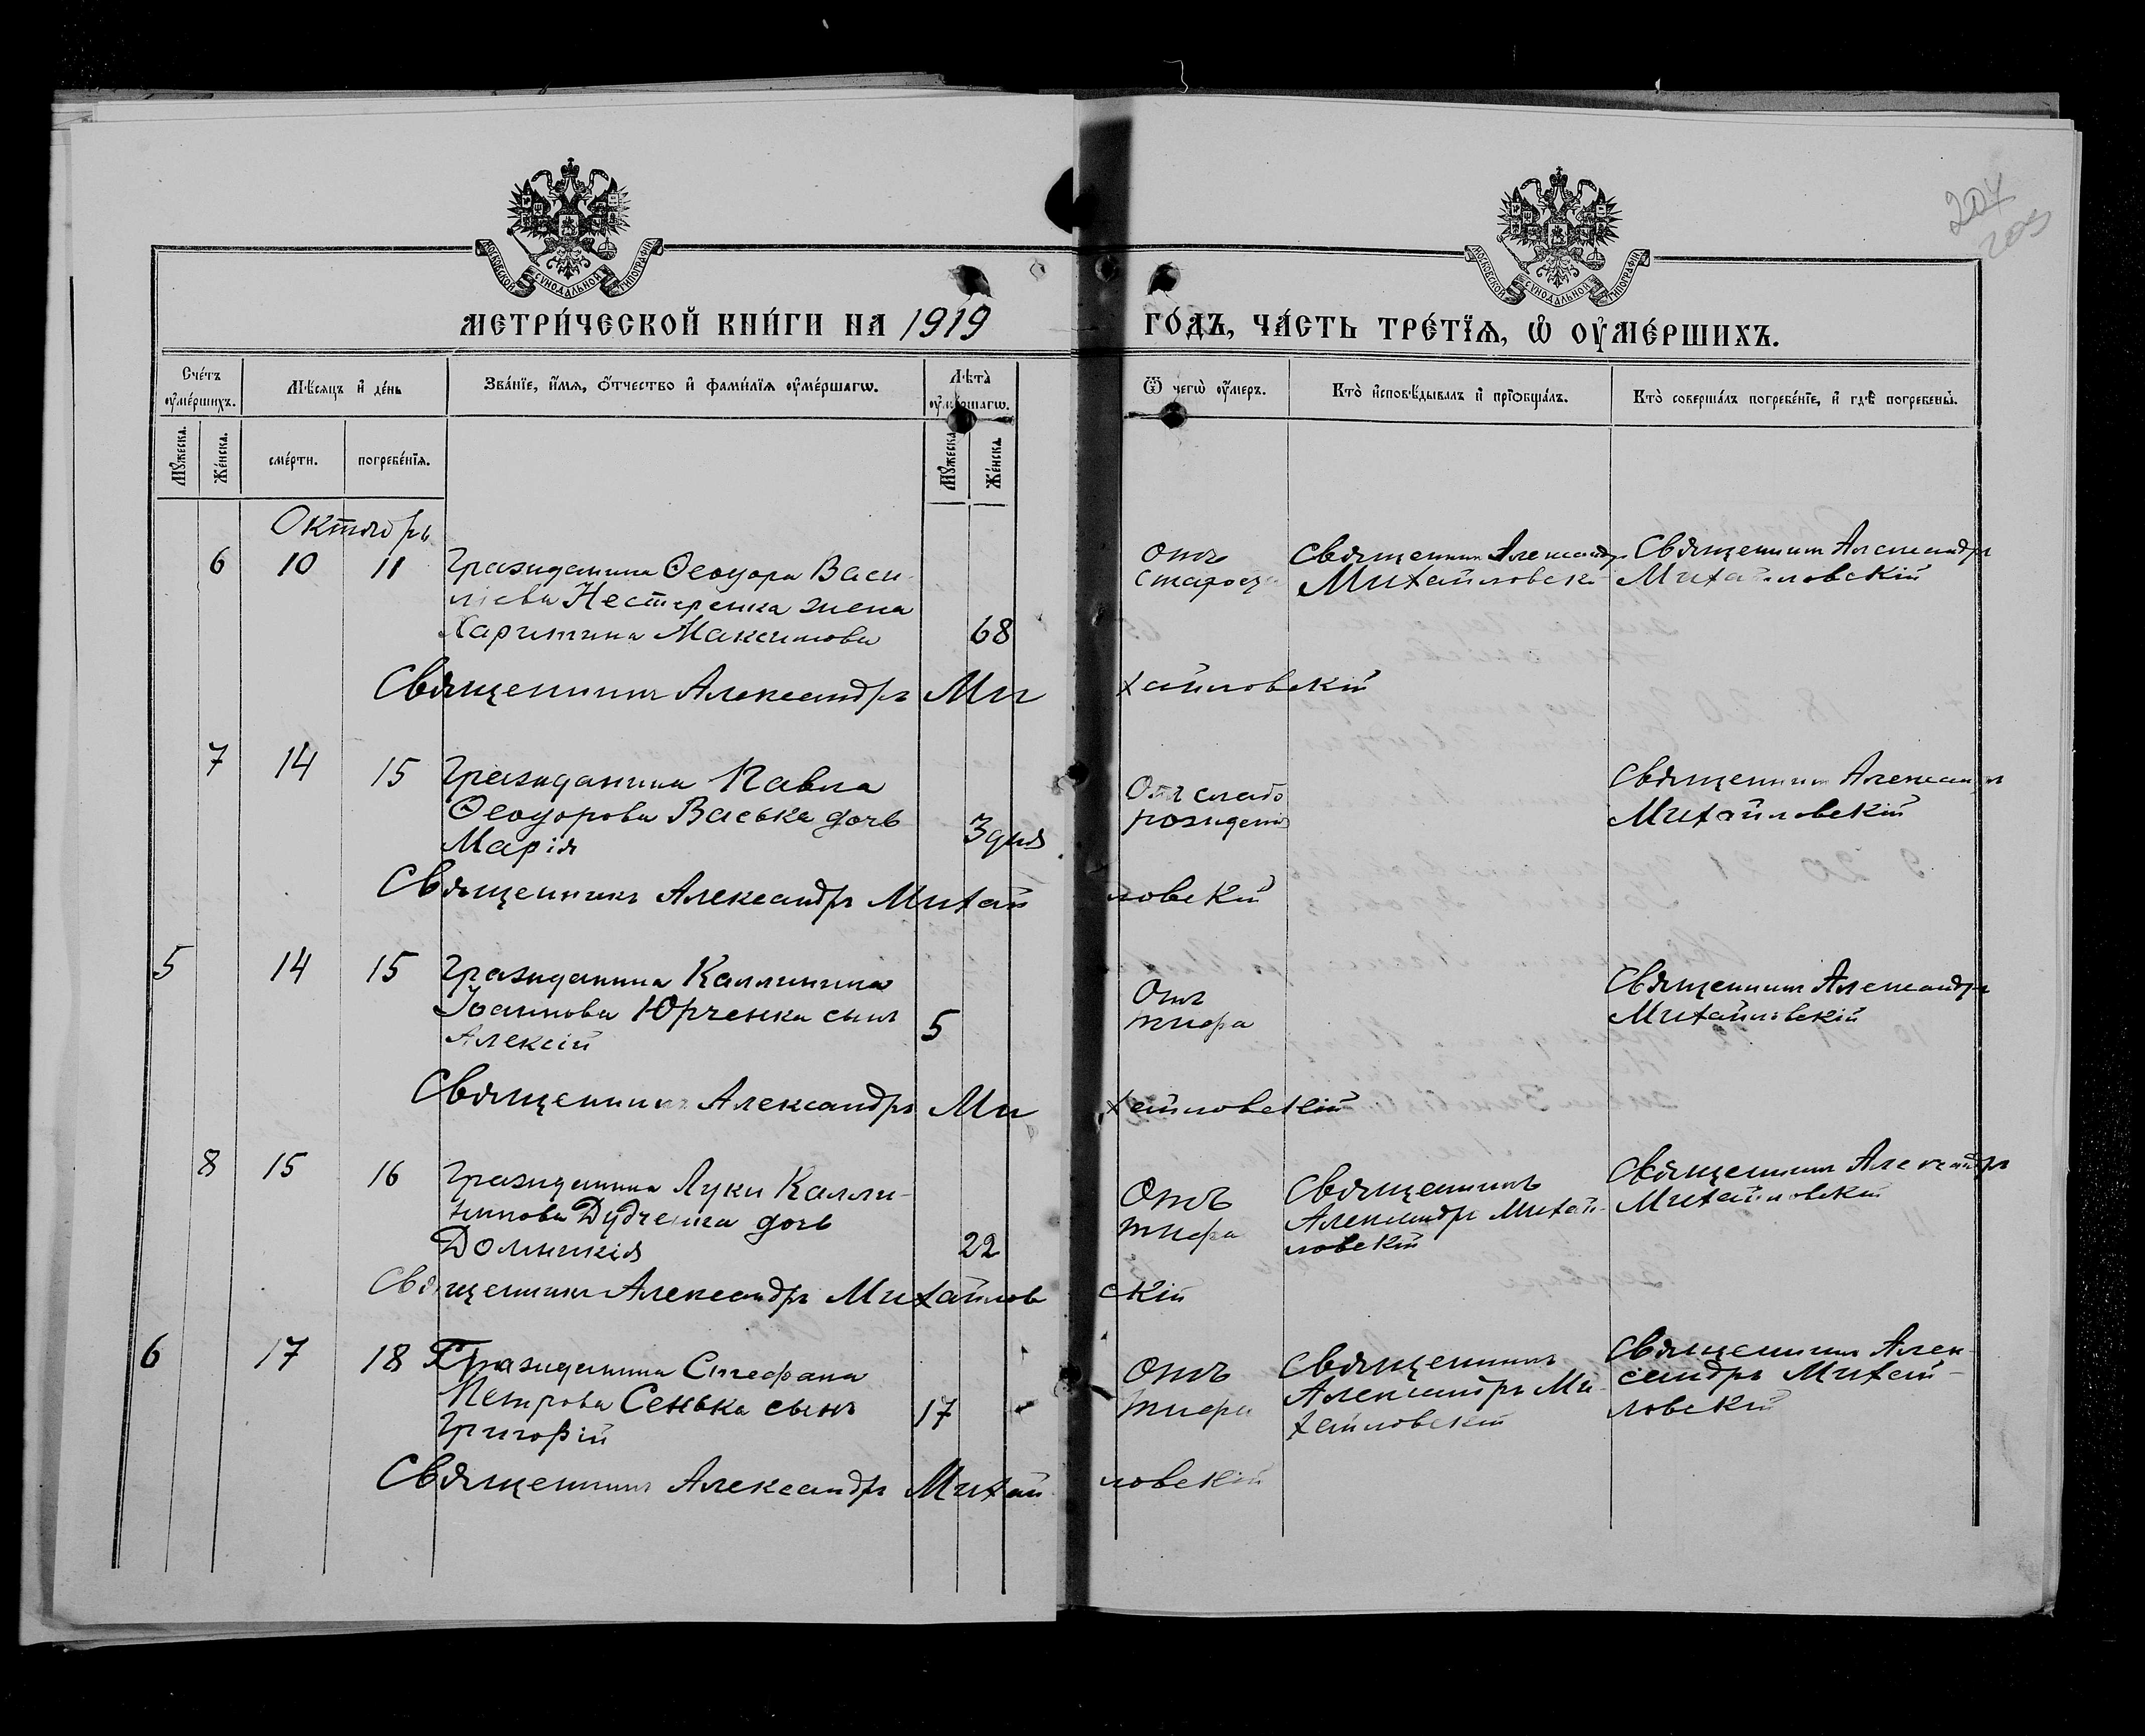 204
205
МОСКОВСКОЙ СѴНОДАЛЬНОЙ ТИПОГРАФІИ
МОСКОВСКОЙ СѴНОДАЛЬНОЙ ТИПОГРАФІИ
МЕТРИ́ЧЕСКОЙ КНИ́ГИ НА 1919
ГО́ДЪ, ЧА́СТЬ ТРЕ́ТЇѦ, Ѽ ОУ҆МЕ́РШИХЪ.
Сче́тъ оу҆ме́ршихъ.
Мѣ́сѧцъ и҆ де́нь
Зва́нїе, и҆́мѧ, ѻ҆́тчество и҆ фами́лїѧ оу҆ме́ршагѡ.
Лѣта̀ оу҆ме́ршагѡ.
Ѿ чегѡ̀ оу҆́меръ.
Кто̀ и҆сповѣ́дывалъ и҆ прїѡбща́лъ.
Кто̀ соверша́лъ погребе́нїе, и҆ гдѣ̀ погребены̀.
Мꙋ́жеска.
Же́нска.
сме́рти.
погребе́нїѧ.
Мꙋ́жеска.
Же́нска.
Октябрь
6 10 11 Гражданина Ѳеодора Васи-
льева Нестеренка жена
Харитина Максимова 68
Отъ
старости
Священникъ Александръ
Михайловскій
Священникъ Александръ
Михайловскій
Священникъ Александръ Михайловскій
7 14 15 Гражданина Павла
Ѳеодорова Васька дочь
Марія 3 дня
От слабо
рожденія
Священникъ Александръ
Михайловскій
Священникъ Александръ Михайловскій
5 14 15 Гражданина Каллиника
Іоаннова Юрченка сынъ
Алексій 5
Отъ
тифа
Священникъ Александръ
Михайловскій
Священникъ Александръ Михайловскій
8 15 16 Гражданина Луки Калли-
никова Дудченка дочь
Домникія 22
Отъ
тифа
Священникъ
Александръ Михай-
ловскій
Священникъ Александръ
Михайловскій
Священникъ Александръ Михайловскій
6 17 18 Гражданина Стефана
Петрова Сенька сынъ
Григорій 17
Отъ
тифа
Священникъ
Александръ Ми-
хайловскій
Священникъ Алек-
сандръ Михай-
ловскій
Священникъ Александръ Михайловскій